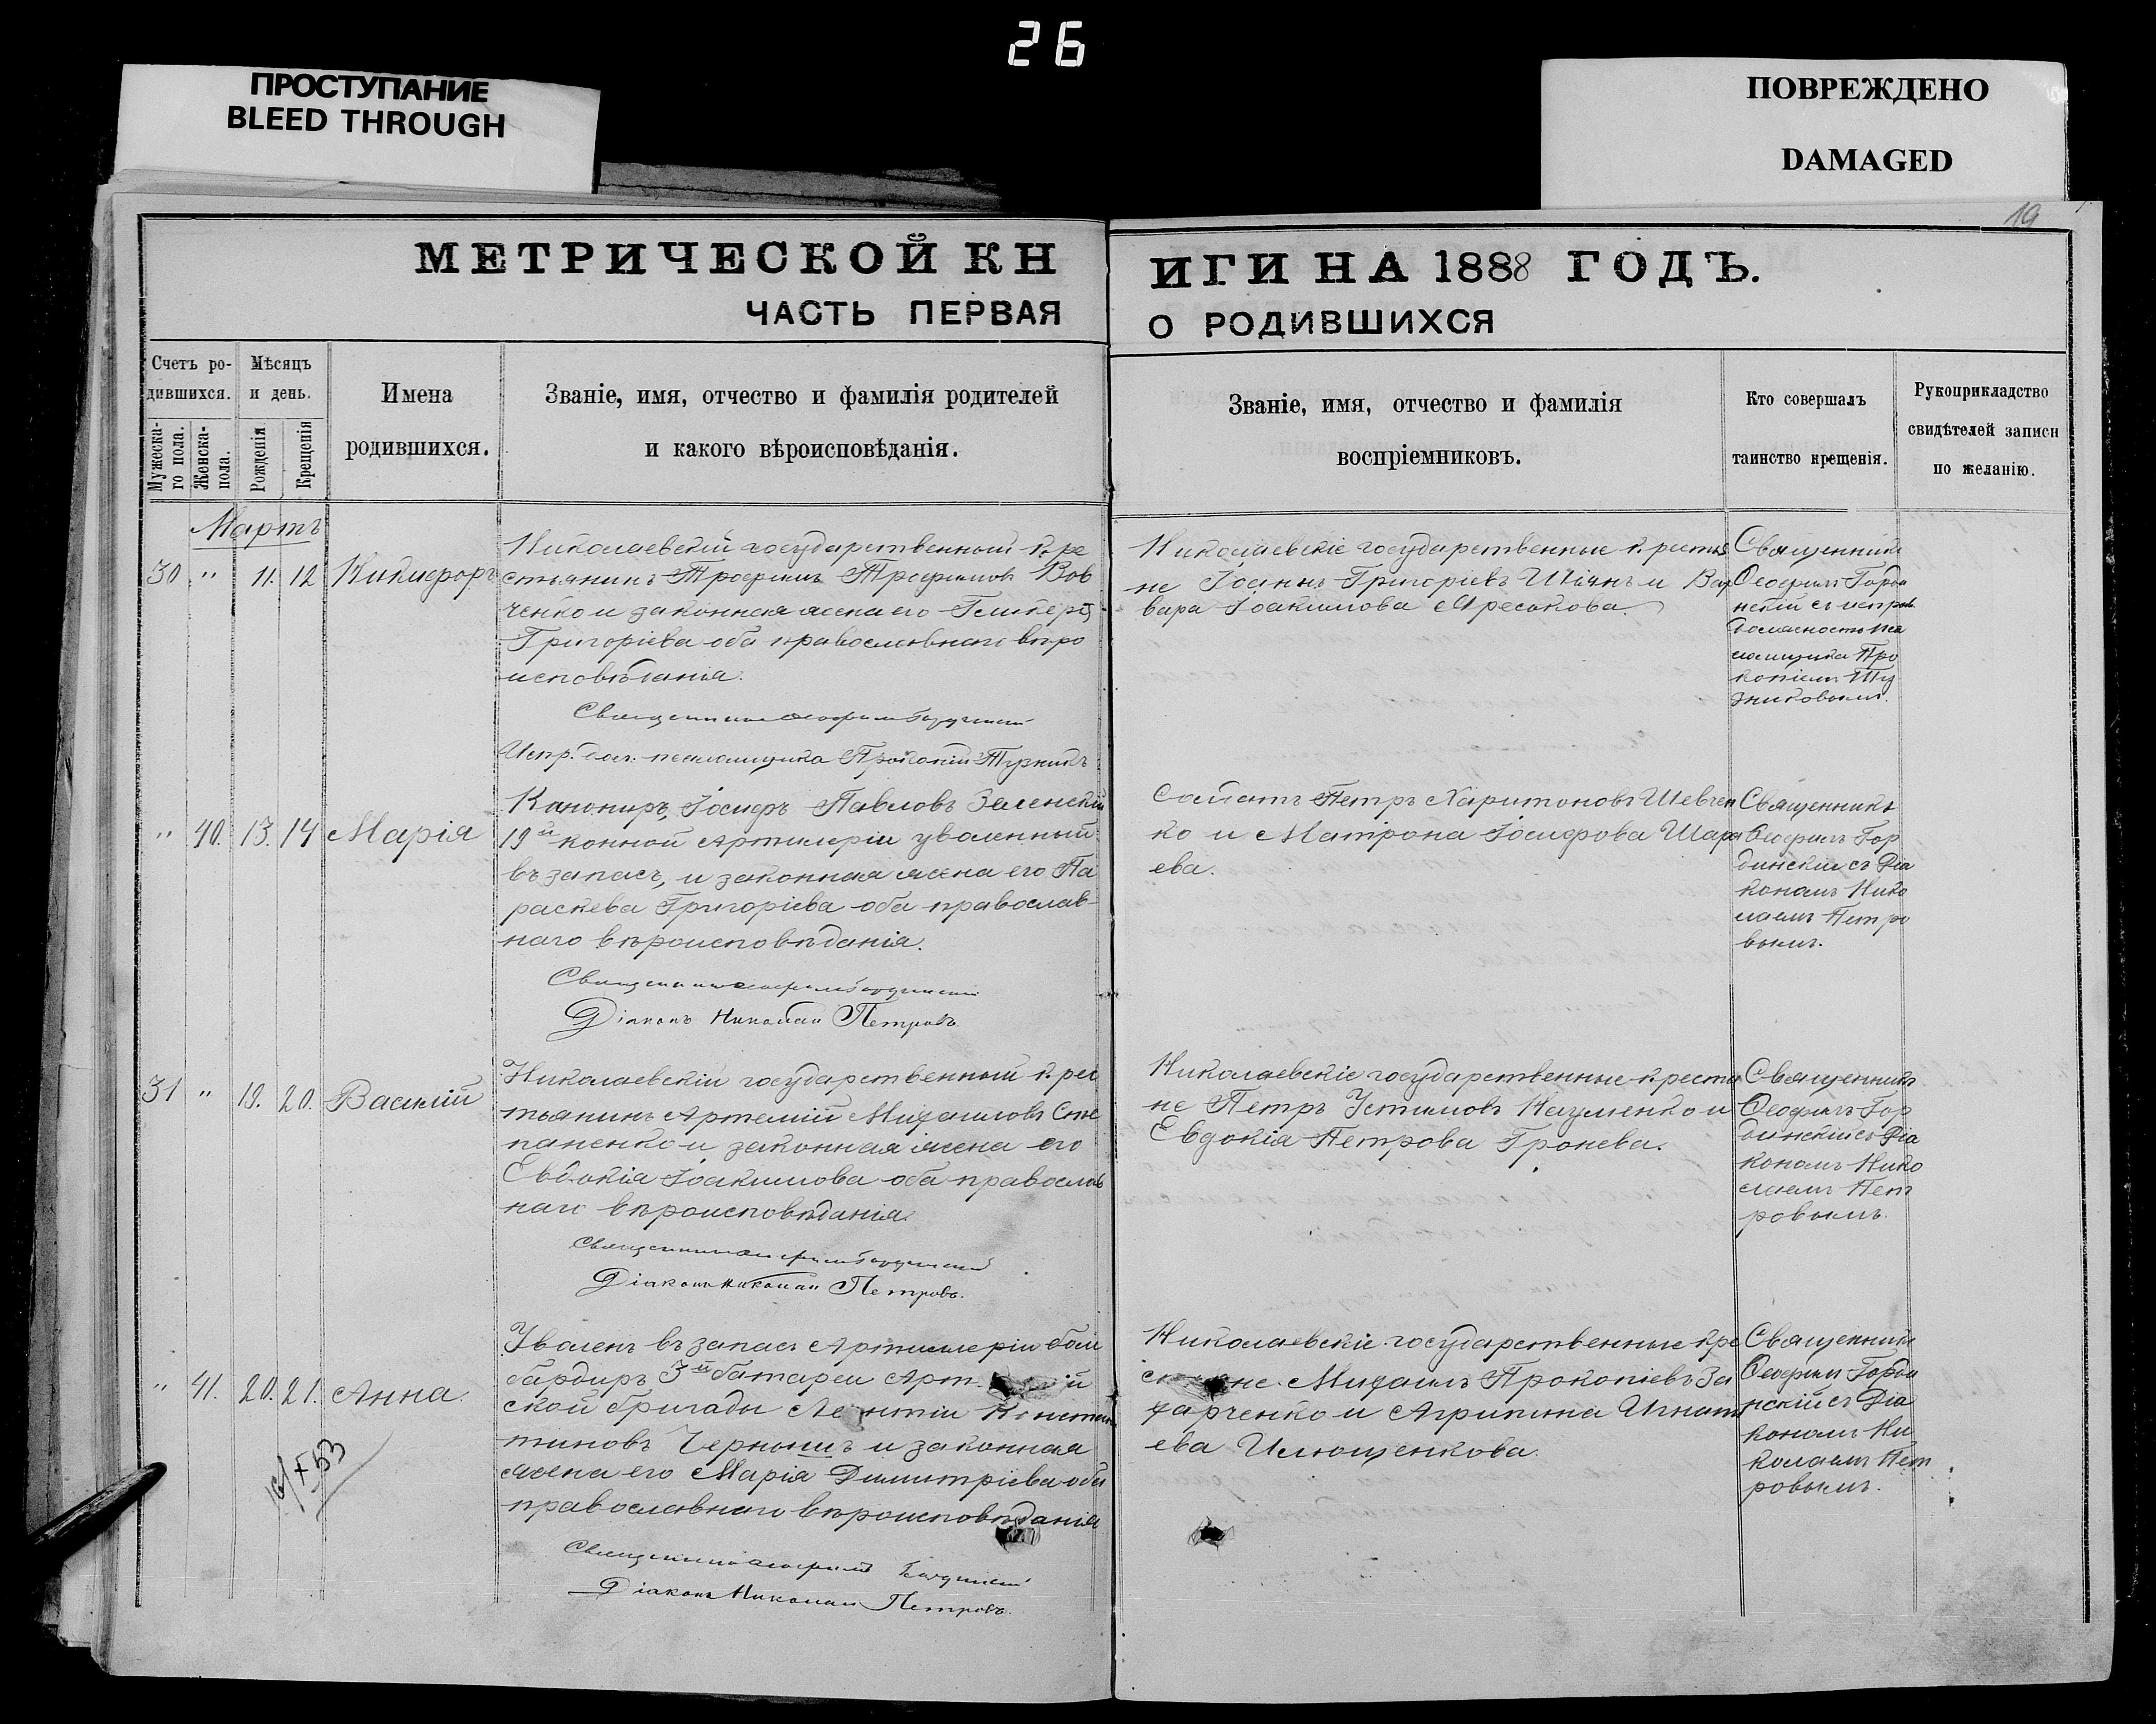 26
ПРОСТУПАНИЕ
BLEED THROUGH
ПОВРЕЖДЕНО
DAMAGED
19
МЕТРИЧЕСКОЙ КН
ИГИ НА 1888 ГОДЪ.
ЧАСТЬ ПЕРВАЯ
О РОДИВШИХСЯ
Счетъ ро-
дившихся.
Мужеска-
го пола.
Женска-
пола.
Мѣсяцъ
и день.
Рожденія
Крещенія
Имена
родившихся.
Званіе, имя, отчество и фамилія родителей
и какого вѣроисповѣданія.
Званіе, имя, отчество и фамилія
воспріемниковъ.
Кто совершалъ
таинство крещенія.
Рукоприкладство
свидѣтелей записи
по желанію.
Мартъ
30 " 11. 12 Никифоръ
Николаевскій государственный кре
стьянинъ Трофимъ Трофимовъ Вов
ченко и законная жена его
Григоріева оба православнаго вѣро
исповѣданія.
Священникъ Ѳеофилъ
Испр. дол. псаломщика Прокопій
Николаевскіе государственные крестья
не Іоаннъ Григоріевъ и Вар
вара Іоакимова
Священникъ
Ѳеофилъ Горди
нскій съ испр.
должность пса
ломщика Про
копіемъ
" 40. 13. 14 Марія
Канониръ, Іосифъ Павловъ Зеленскій
19й конной Артилеріи уволенный
въ запасъ, и законная жена его Па
раскева Григоріева оба православ-
наго вѣроисповѣданія.
Священникъ Ѳеофилъ
Діаконъ Николай Петровъ.
Солдатъ Петръ Харитоновъ Шевчен
ко и Матрона Іосифова
ева.
Священникъ
Ѳеофилъ Гор
динскій съ Діа
кономъ Нико
лаемъ Петро
вымъ.
31 " 19. 20. Василій
Николаевскій государственный крес
тьянинъ Артемій Михаиловъ Сте
паненко и законная жена его
Евдокія Іоакимова оба православ
наго вѣроисповѣданія.
Священникъ
Діаконъ Николай Петровъ.
Николаевскіе государственные крестья
не Петръ Устимовъ Науменко и
Евдокія Петрова Гронева.
Священникъ
Ѳеофилъ Гор
динскій съ Діа
кономъ Нико
лаемъ Пет
ровымъ.
" 41. 20. 21. Анна.
Уволенъ въ запасъ Артиллеріи бом
бардиръ 3й батареи Арт.
ской бригады Леонтій Констан
тиновъ Чернышъ и законная
жена его Марія Димитріева оба
православнаго вѣроисповѣданія
Священникъ Ѳеофилъ
Діаконъ Николай Петровъ.
Николаевскіе государственные кре
не Михаилъ Прокопіевъ За
харченко и Агрипина Игнать
ева Илющенкова.
Священникъ
Ѳеофилъ Горди
нскій съ Діа
кономъ Ни
колаемъ Пет
ровымъ.